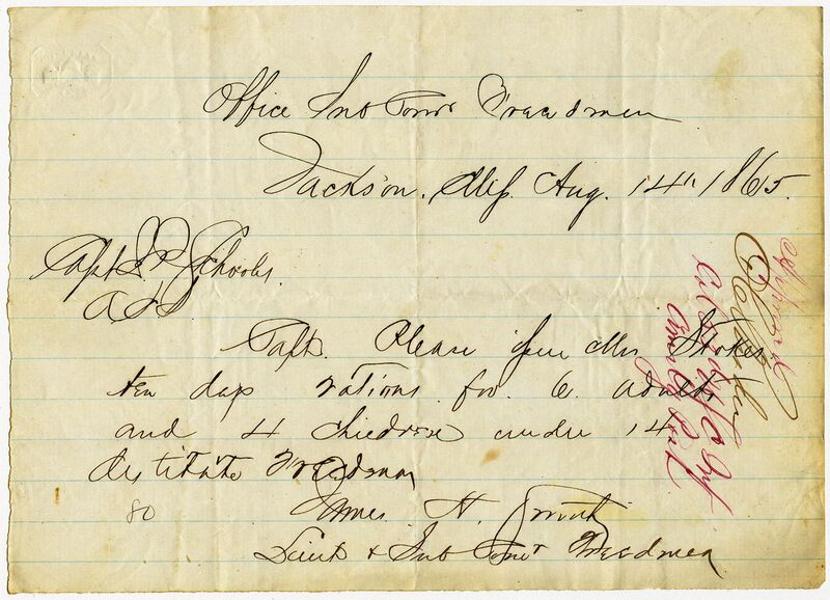 Office Sub Comr Freedmen
Jackson, Miss. Aug. 14th 1865.
Capt J. R. Schools.
Capt. Please give Mrs Stokes
ten days rations for 6 adults
and 4 children under 14
destitute Freedmen
James H.
Lieut & Sub Comr Freedmen
80
Approved